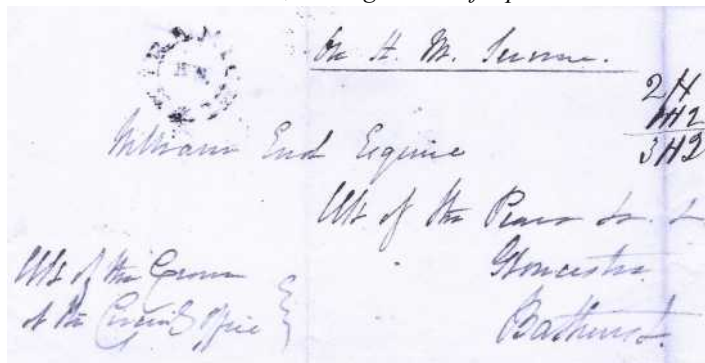 On H. M. Service.
2 H
3 H 2
William End Esquire
Clk of the Peace &c. &c
Gloucester
Bathurst.
Clk of the Crown
at the Council Office